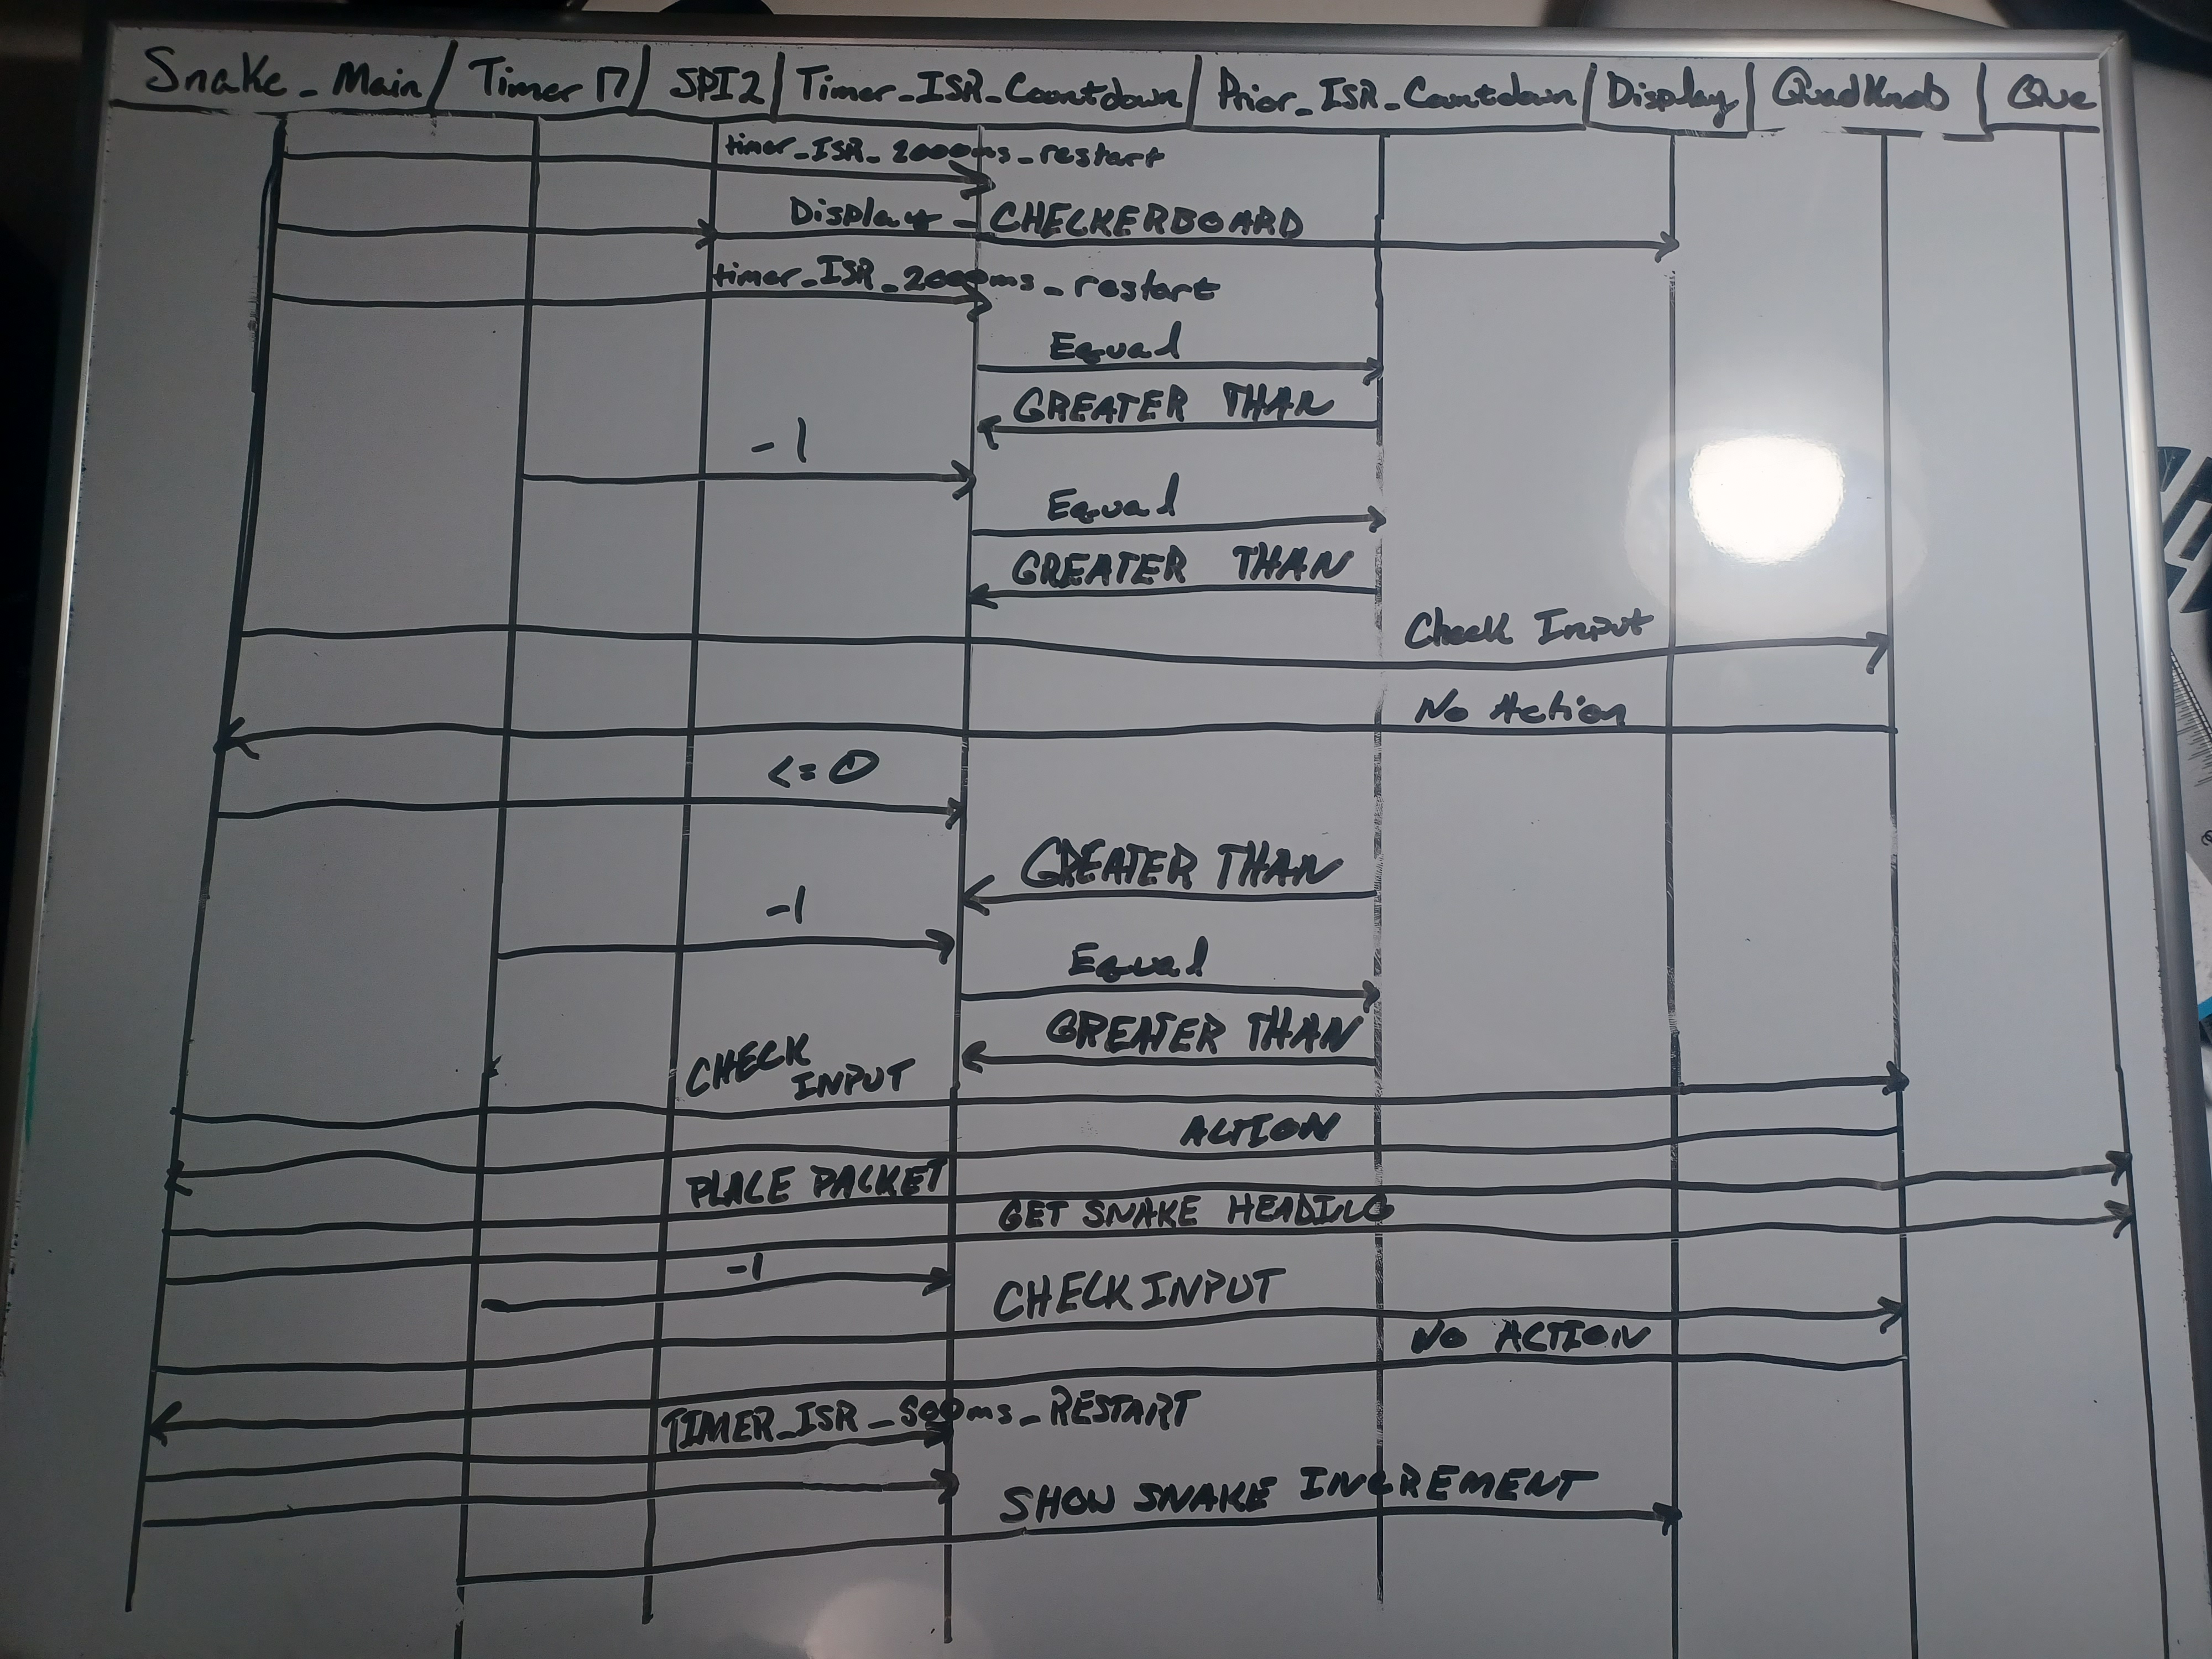 Snake_Main / Timer 17 / SPI2 / Timer_ISR_Countdown / Prior_ISR_Countdown / Display / QuadKnob / Que
timer_ISR_2000ms_restart
Display_CHECKERBOARD
timer_ISR_2000ms_restart
Equal
GREATER THAN
-1
Equal
GREATER THAN
Check Input
No Action
<=0
GREATER THAN
-1
Equal
GREATER THAN
CHECK
INPUT
ACTION
PLACE PACKET
GET SNAKE HEADING
-1
CHECK INPUT
No ACTION
TIMER_ISR_500ms_RESTART
SHOW SNAKE INCREMENT